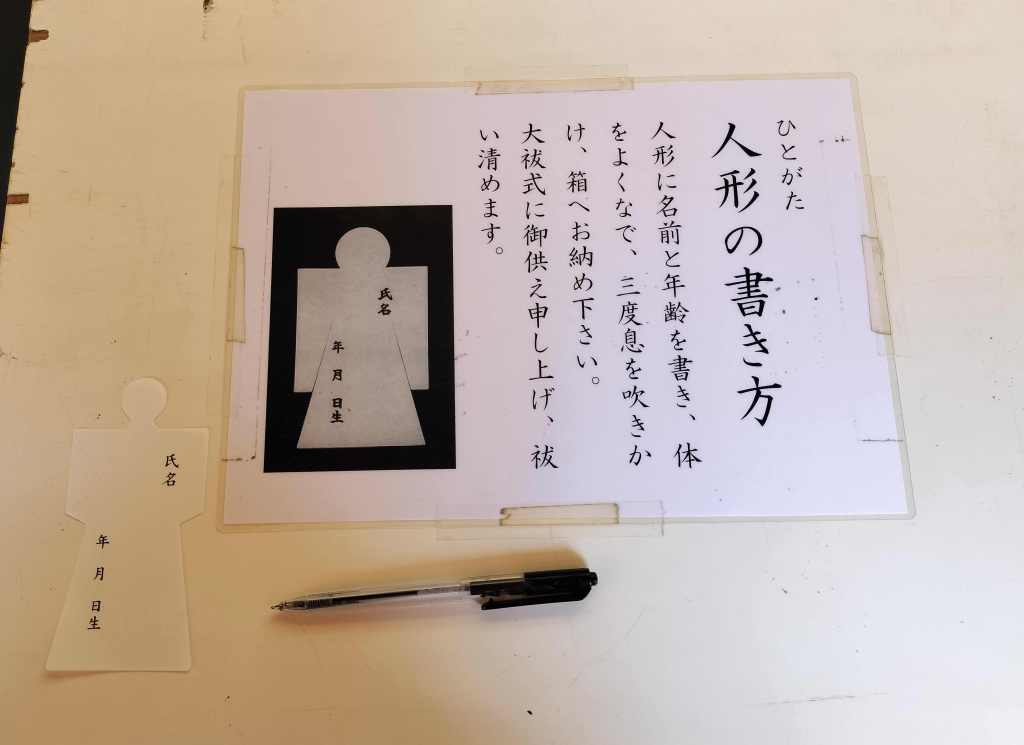 ひとがた
人形の書き方
人形に名前と年齢を書き、体
をよくなで、三度息を吹きか
け、箱へお納め下さい。
大祓式に御供え申し上げ、祓
い清めます。
氏名
年 月 日生
氏名
年 月 日生